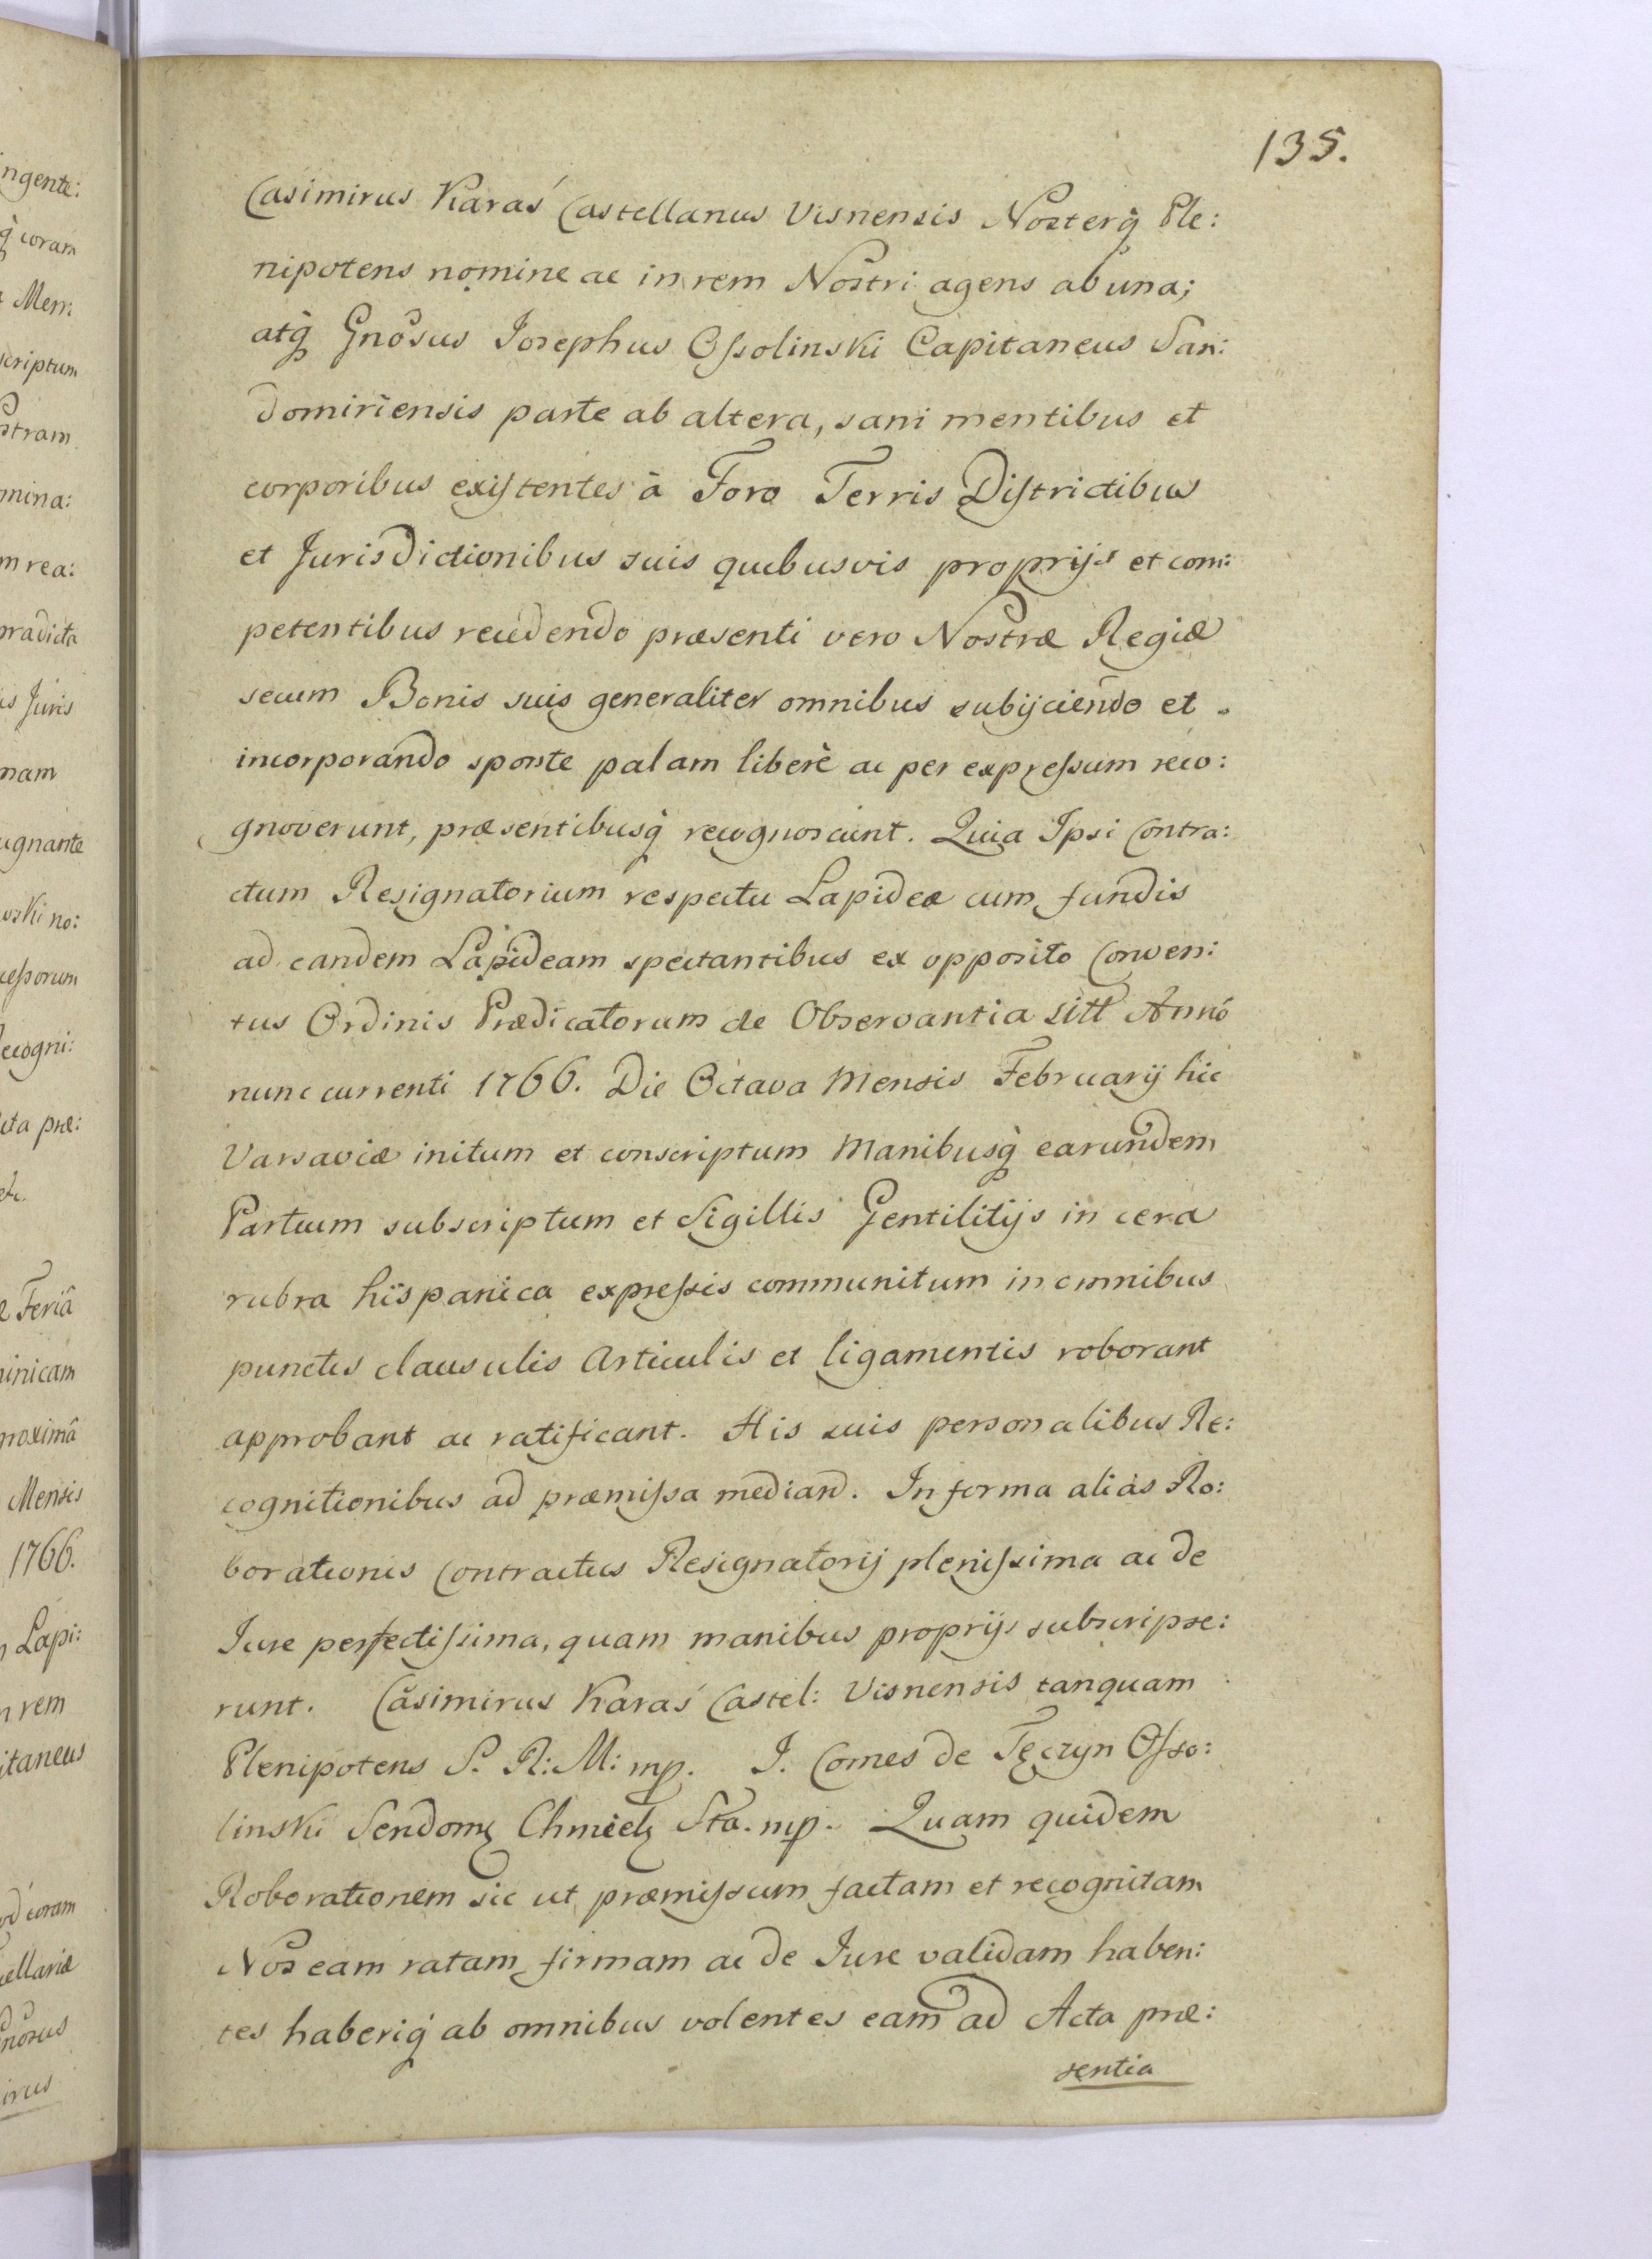 135.
Casimirus Karaś Castellanus Visnensis Nosterq̃ Ple:
nipotens nomine ac in rem Nostri agens ab una;
atq̃ Gnosus Josephus Ossolinski Capitaneus San:
domiriensis parte ab altera, sani mentibus et
corporibus existentes à Foro Terris Districtibus
et Jurisdictionibus suis quibusvis proprijs et com:
petentibus recedendo præsenti vero Nostræ Regiæ
secum Bonis suis generaliter omnibus subijciendo et
incorporando sponte palam liberè ac per expressum reco:
gnoverunt, præsentibusq̃ recognoscunt. Quia Ipsi Contra:
ctum Resignatorium respectu Lapideæ cum fundis
ad eandem Lapideam spectantibus ex opposito Conven:
tus Ordinis Prædicatorum de Observantia sitt Annó
nunc currenti 1766. Die Octava Mensis Februarij hic
Varsaviæ initum et conscriptum Manibusq̃ earundem
Partium subscriptum et Sigillis Gentilitijs in cera
rubra hispanica expressis communitum in omnibus
punctis clausulis Articulis et ligamentis roborant
approbant ac ratificant. His suis personalibus Re:
cognitionibus ad præmissa mediand. In forma aliàs Ro:
borationis Contractus Resignatorij plenissima ac de
Jure perfectissima, quam manibus proprijs subscripse:
runt. Casimirus Karaś Castel: Visnensis tanquam
Plenipotens S. R: M: mp. J. Comes de Tęczyn Osso:
linski Sendomz Chmielz Sta. mp. Quam quidem
Roborationem sic ut præmissum factam et recognitam
Nos eam ratam firmam ac de Jure validam haben:
tes haberiq̃ ab omnibus volentes eam ad Acta præ:
sentia